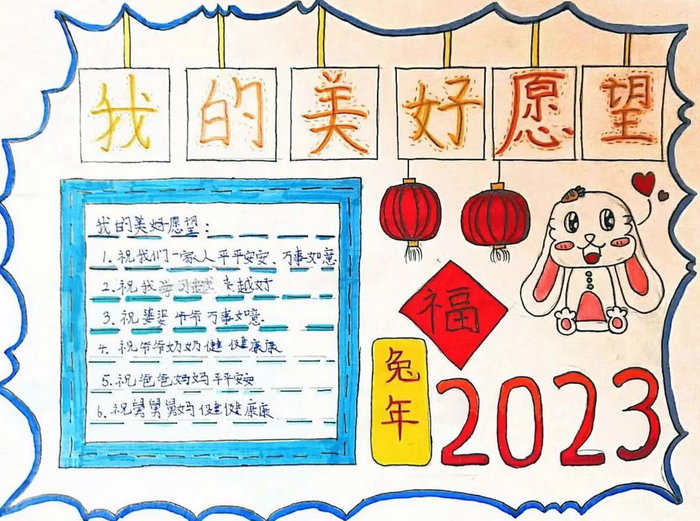 我的美好愿望
我的美好愿望：
1.祝我们一家人平平安安、万事如意
2.祝我学习越来越好
3.祝婆婆爷爷万事如意
4.祝爷爷奶奶健健康康
5.祝爸爸妈妈平平安安
6.祝舅舅舅妈健健康康
福
兔年
2023